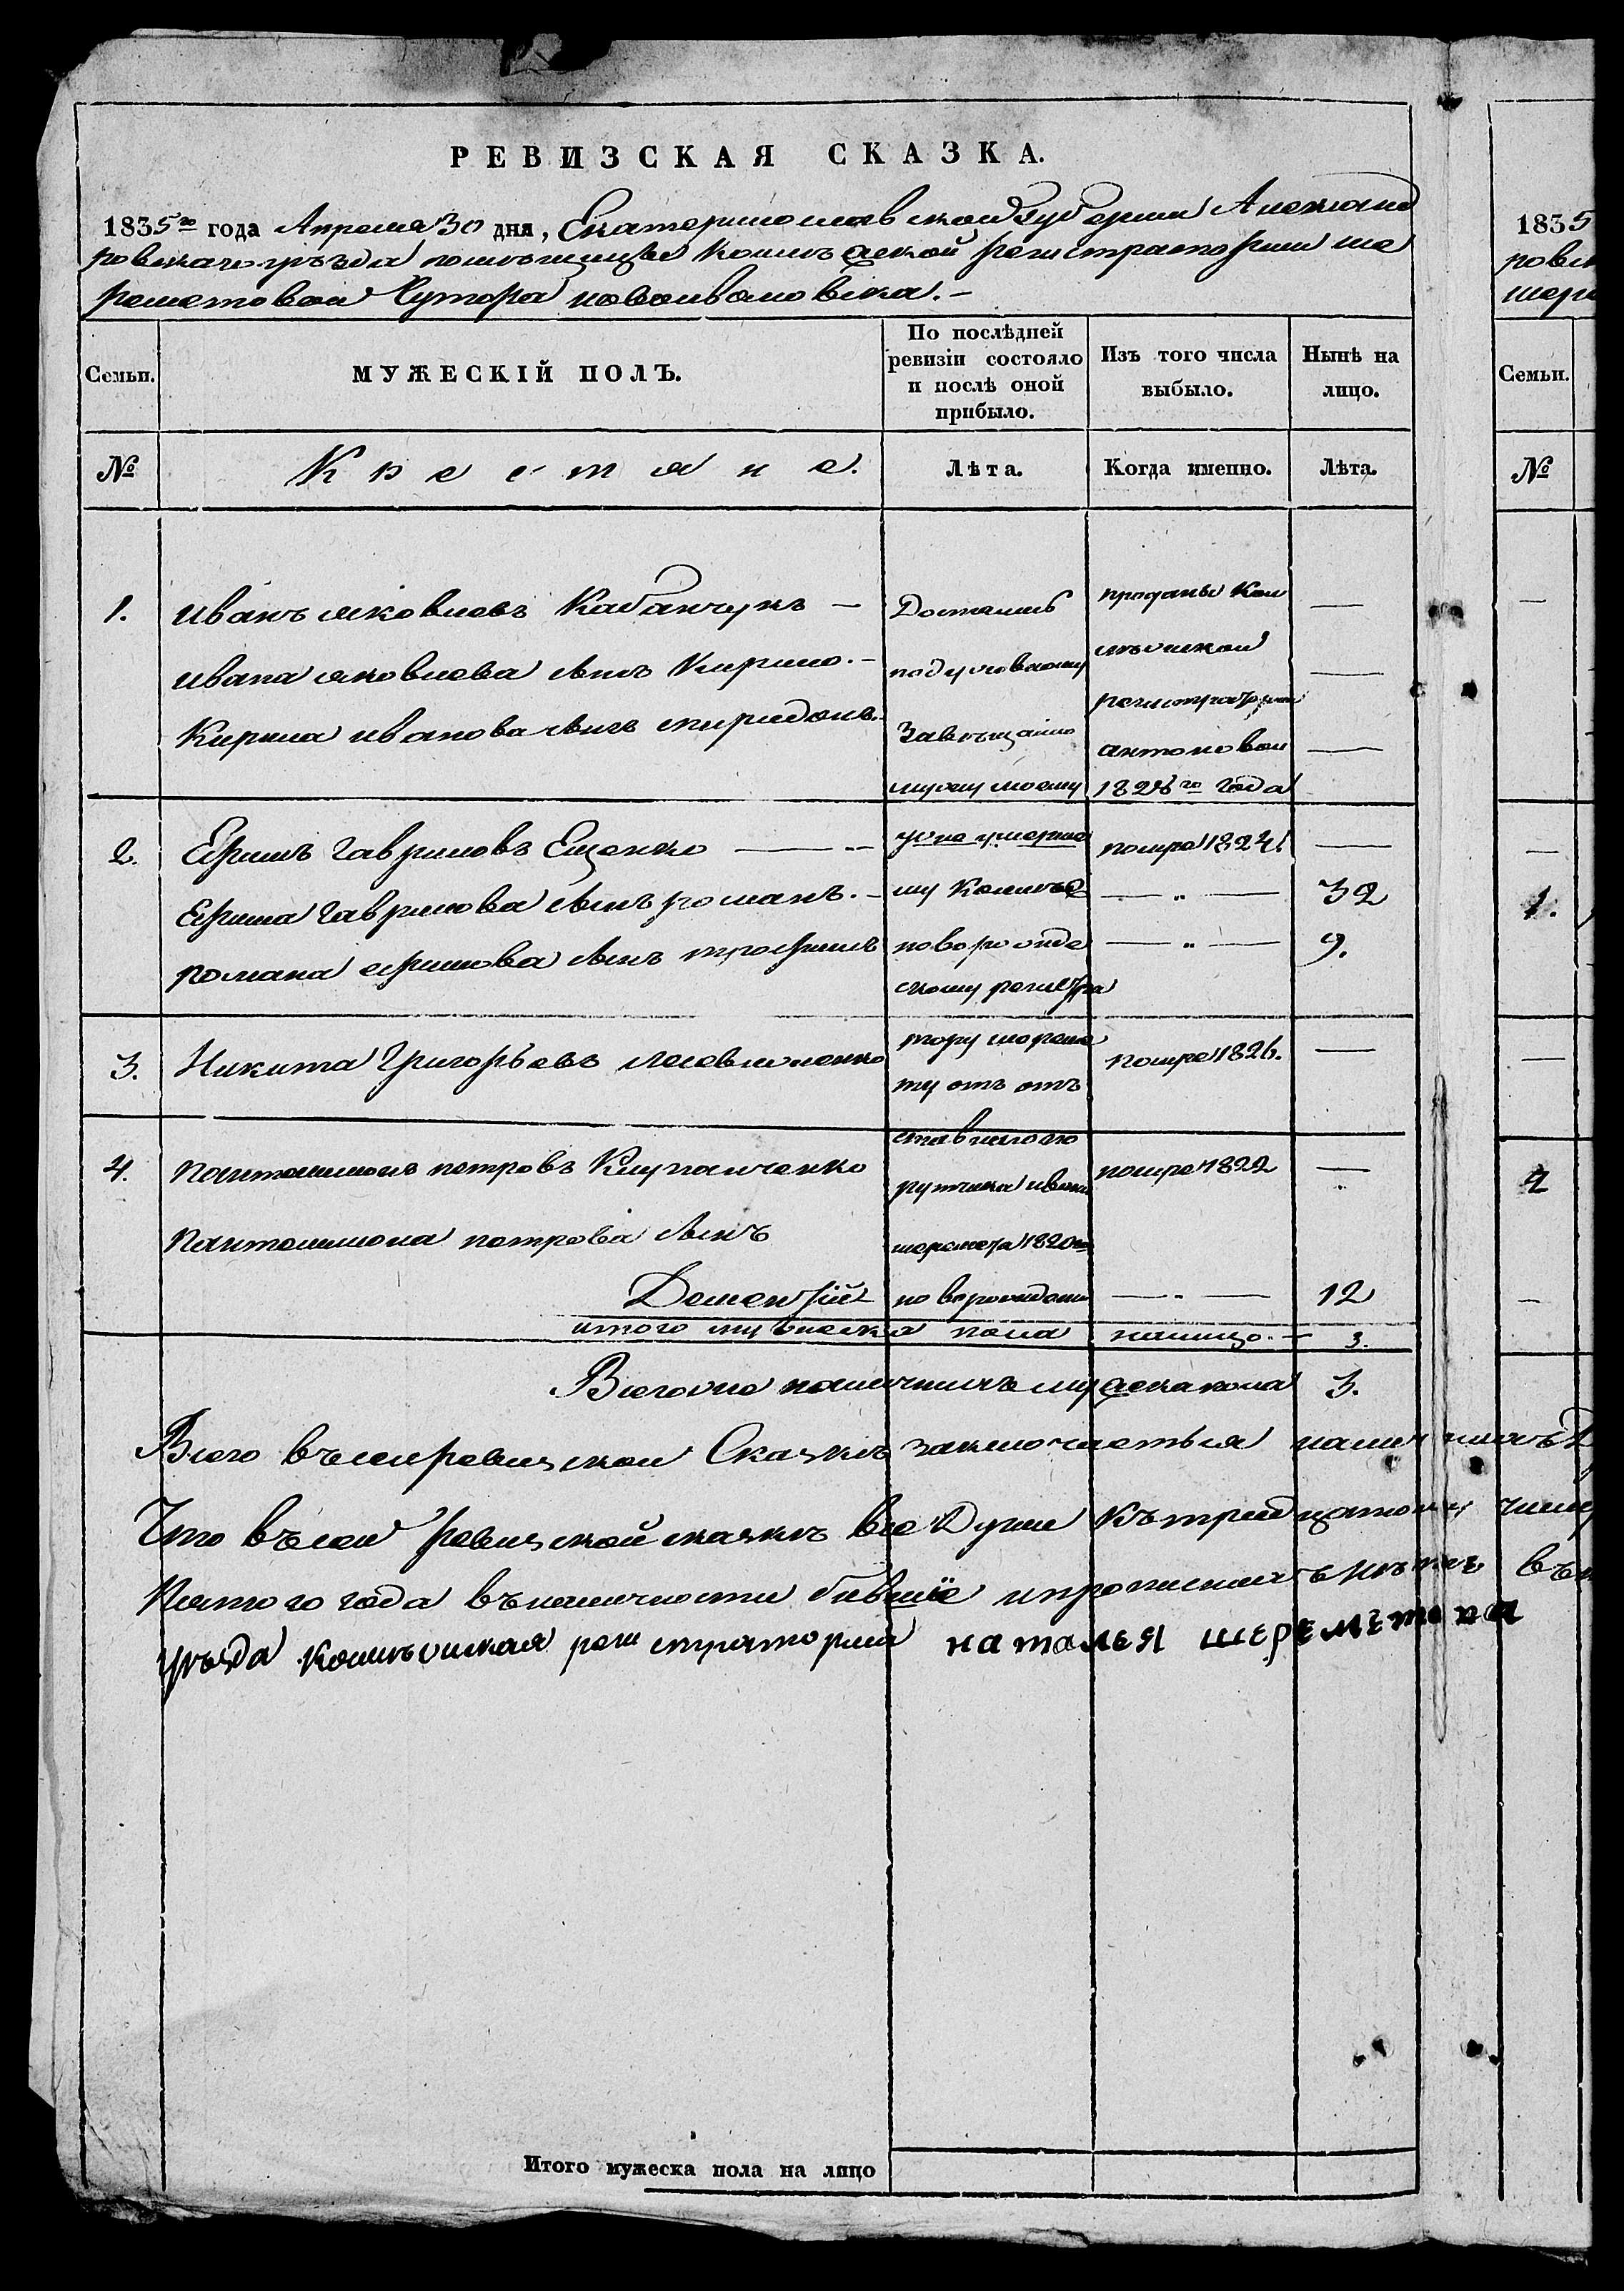 РЕВИЗСКАЯ СКАЗКА.
1835го года Апреля 30 дня, Екатеринославской Губернии Александ
ровскаго уѣзда помѣщицы Колѣжской регистраторши ше
реметовой Хутора новоивановска.-
Семьи. МУЖЕСКІЙ ПОЛЪ. По послѣдней ревизіи состояло и послѣ оной прибыло. Изъ того числа выбыло. Нынѣ на лицо.
№ Крестяне. Лѣта. Когда именно. Лѣта.
1. иванъ яковлевъ Кабанчукъ — Достались проданы Кол —
ивана яковлева сынъ Кирило.- подуховному лѣжской —
Кирила иванова сынъ спиридонъ.- Завѣщанию регистраторше
антоновой —
мужу моему 1828го года
2. Ефимъ гавриловъ Ещенко — уже умерше помре 1824. —
Ефима гаврилова сынъ романъ.- му Колеж — " — 32
романа ефимова сынъ трофимъ — " — 9.
скому регистра
3. Никита Григорьевъ помре 1826. —
тору шереме
ту отъ отъ
ставнаго по
4. пантелимонъ петровъ помре 1822 —
рутчика ивана
пантелимона петрова сынъ шеремета 1820го
Дементій — " — 12
итого мужеска пола налицо. — 3.
Всегоже наличныхъ мужескапола 3.
Всего въсейревизской Сказкѣ заключаеться наличныхъ
Что въсей ревизской сказкѣ все Души Къ тридцатому числу
Пятого года въналичности бившіе ипрописныхъ нѣтъ въ
уѣзда Колѣжская регистраторша наталея шереметова
Итого мужеска пола на лицо
1835
ровск
шере
Семьи.
№
1.
2